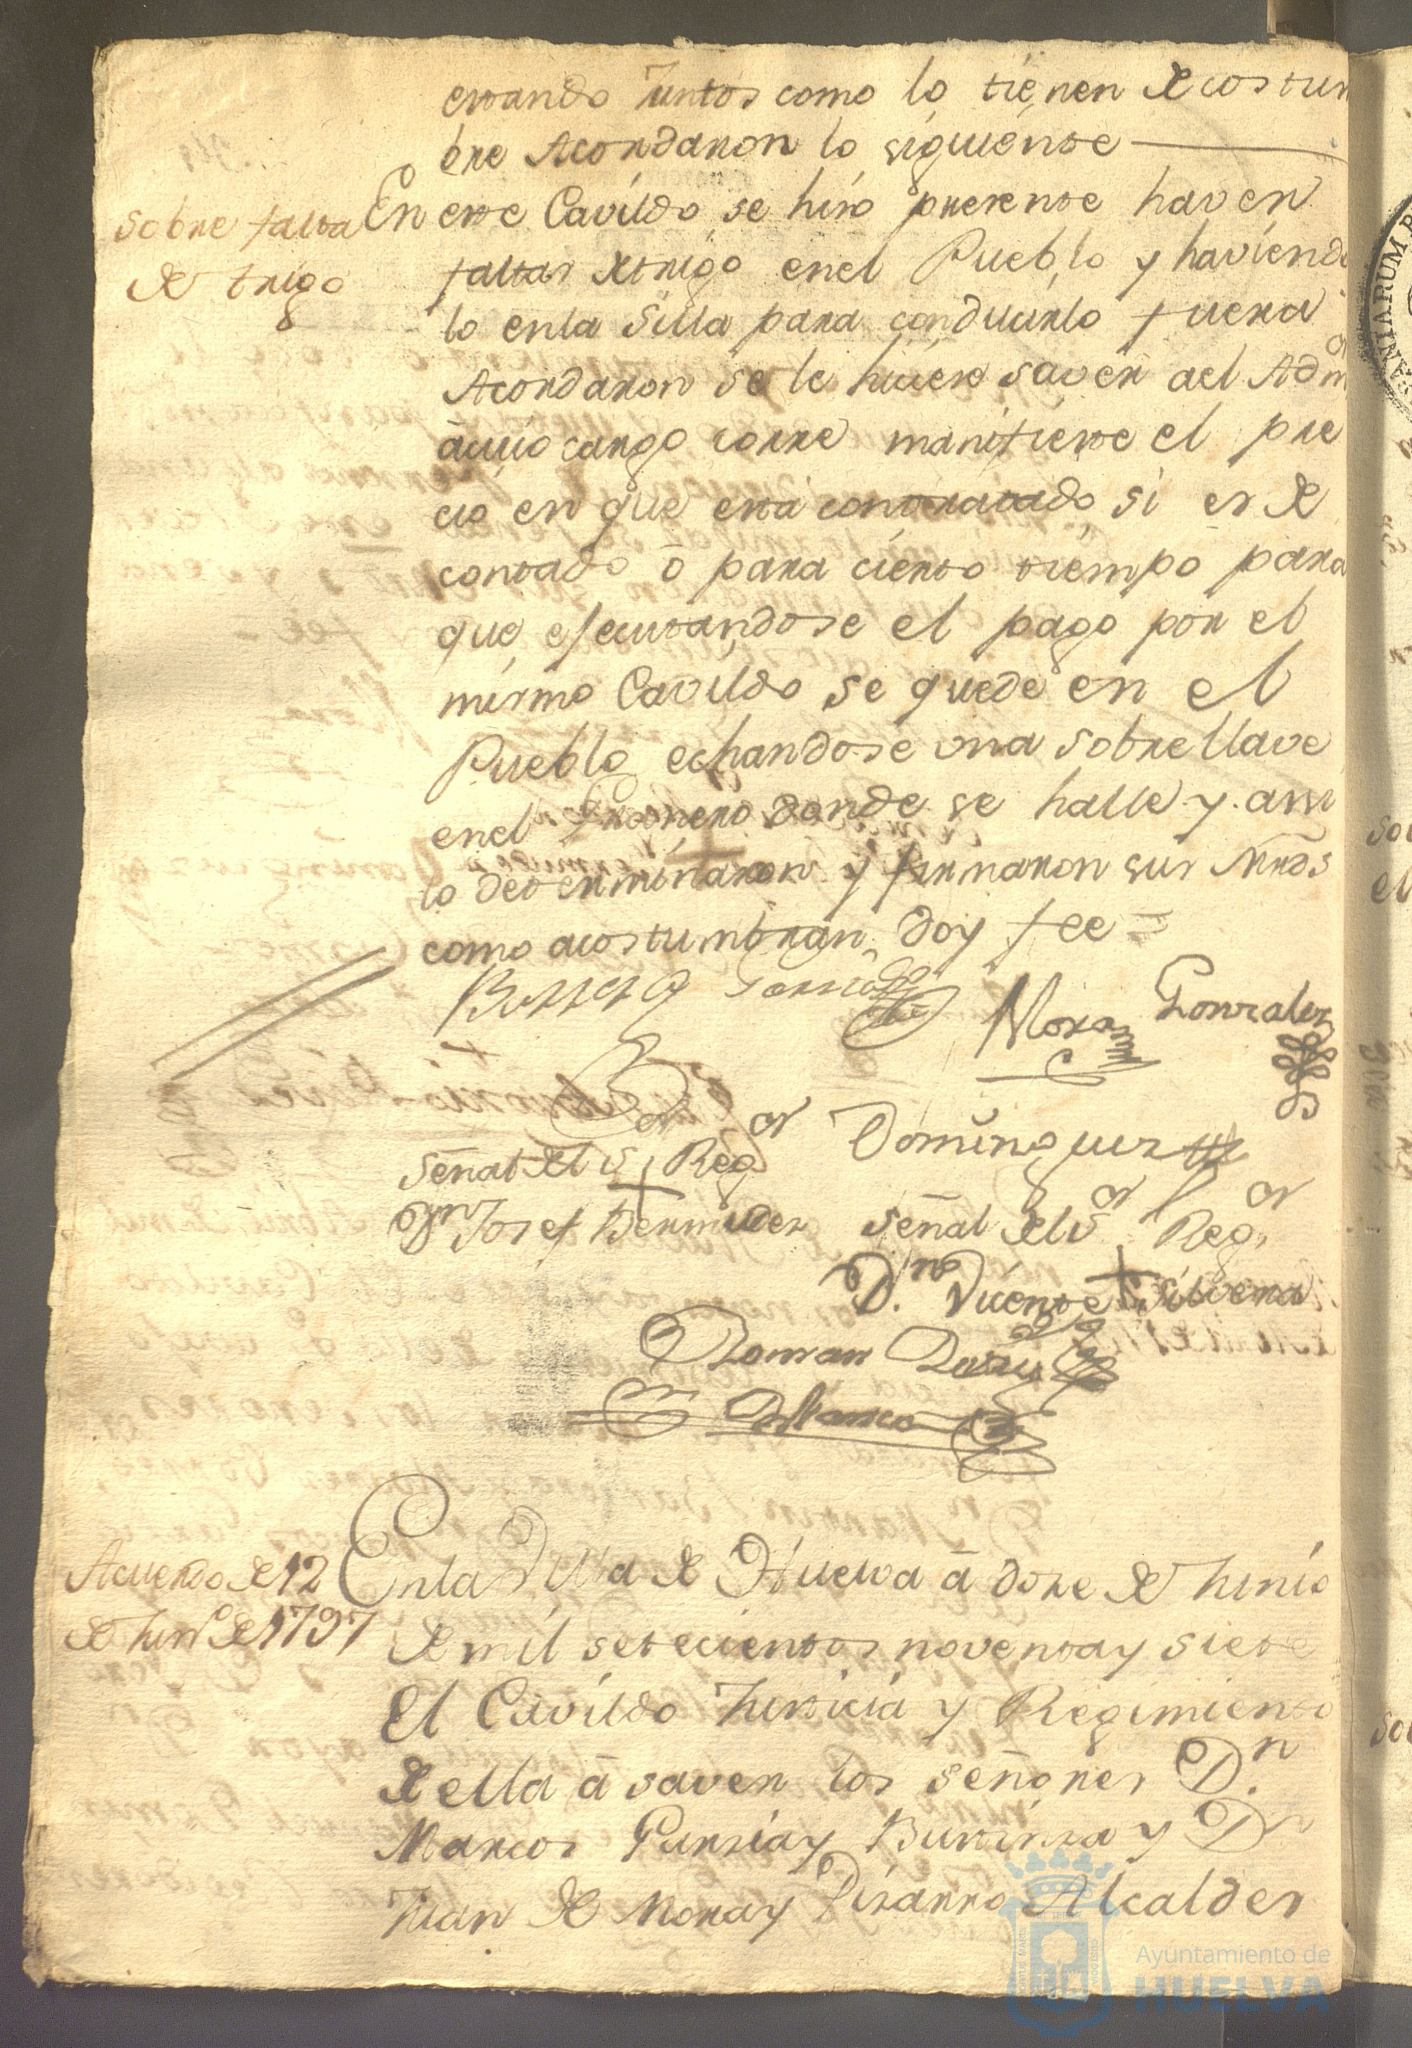 estando Juntos como lo tienen de costum
bre Acordaron lo siguiente
sobre falta
de trigo
En este Cavildo se hiso presente haver
faltas de trigo en el Pueblo y haviendo
lo en la Silla para conducirlo fuera
Acordaron se le hiciese saver ael Admor
ā cuio cargo corre manifieste el pre
cio en que está contratado si es de
contado ō para cierto tiempo para
que ejecutandose el pago por el
mismo Cavildo se quede en el
Pueblo echandose una sobrellave
en el Granero donde se halle y assi
lo determinaron y firmaron sus Mrds
como acostumbran, doy fee =
Garcia
Mora
Gonzalez
Dominguez
Señal del Sor Regor
Dn Josef Bermudez
Señal del Sor Regor
Dn. Vicente Silvera
Acuerdo de 12
de Juno de 1797
En la Villa de Huelva ā dose de Junio
de mil setecientos noventa y siete
El Cavildo Justicia y Regimiento
de ella ā saver los señores Dn.
Marcos Garsia y Dn
Juan de Mora y Pisarro Alcaldes
Ayuntamiento de
HUELVA